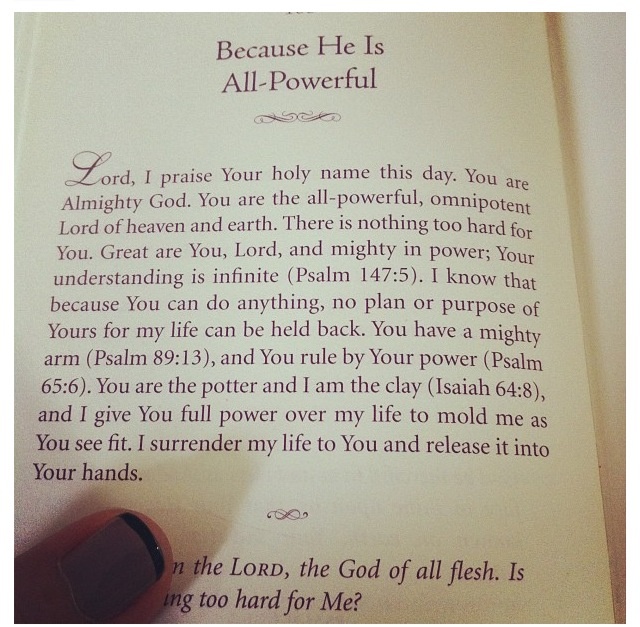 Because He Is
All-Powerful
Lord, I praise Your holy name this day. You are
Almighty God. You are the all-powerful, omnipotent
Lord of heaven and earth. There is nothing too hard for
You. Great are You, Lord, and mighty in power; Your
understanding is infinite (Psalm 147:5). I know that
because You can do anything, no plan or purpose of
Yours for my life can be held back. You have a mighty
arm (Psalm 89:13), and You rule by Your power (Psalm
65:6). You are the potter and I am the clay (Isaiah 64:8),
and I give You full power over my life to mold me as
You see fit. I surrender my life to You and release it into
Your hands.
the LORD, the God of all flesh. Is
too hard for Me?